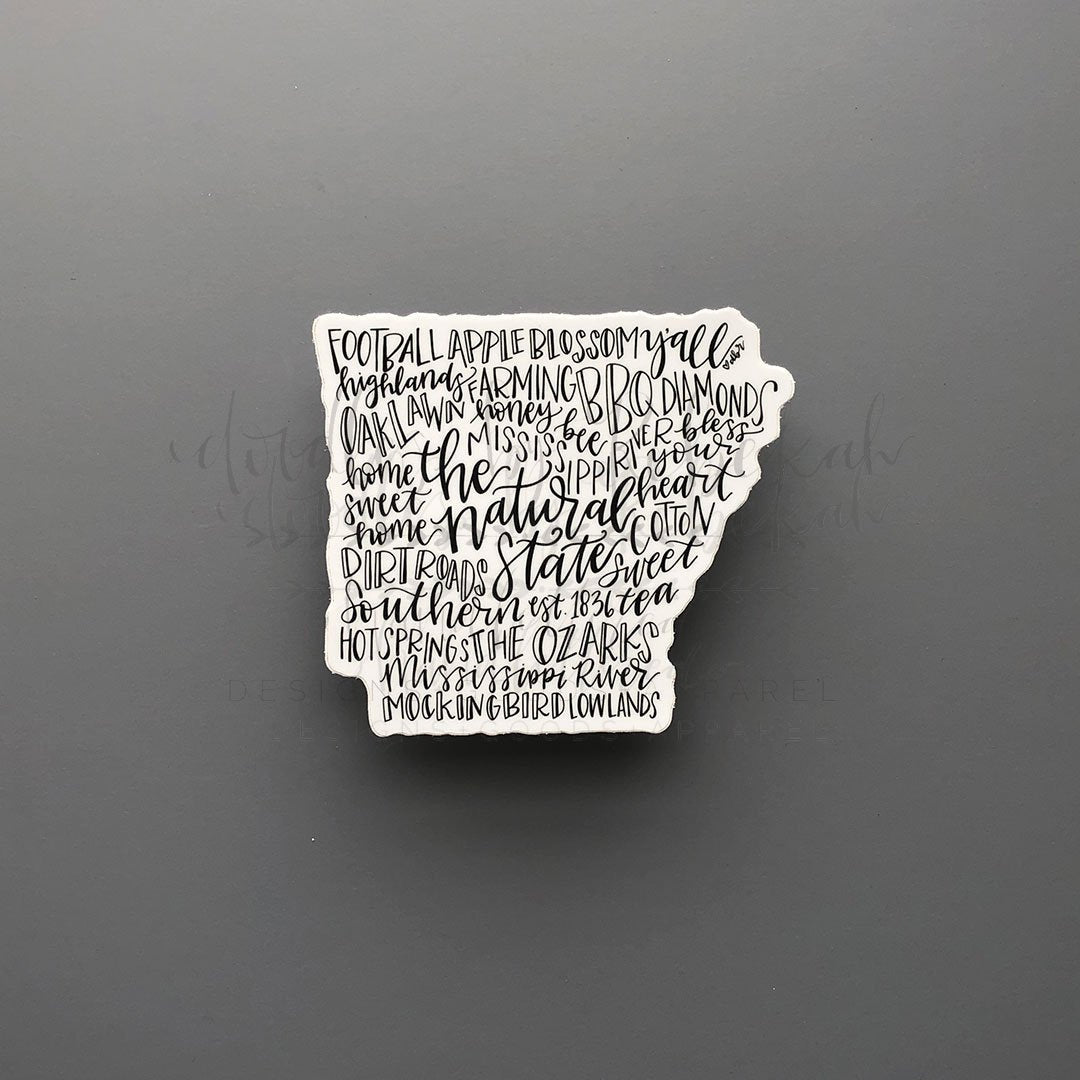 FOOTBALL APPLE BLOSSOM y'all
dbr
highlands FARMING BBQ DIAMONDS
OAKLAWN honey bee
MISSISSIPPI RIVER bless your heart
home sweet home
the natural state
COTTON
DIRT ROADS sweet tea
Southern est. 1836
HOT SPRINGS THE OZARKS
Mississippi River
MOCKINGBIRD LOWLANDS